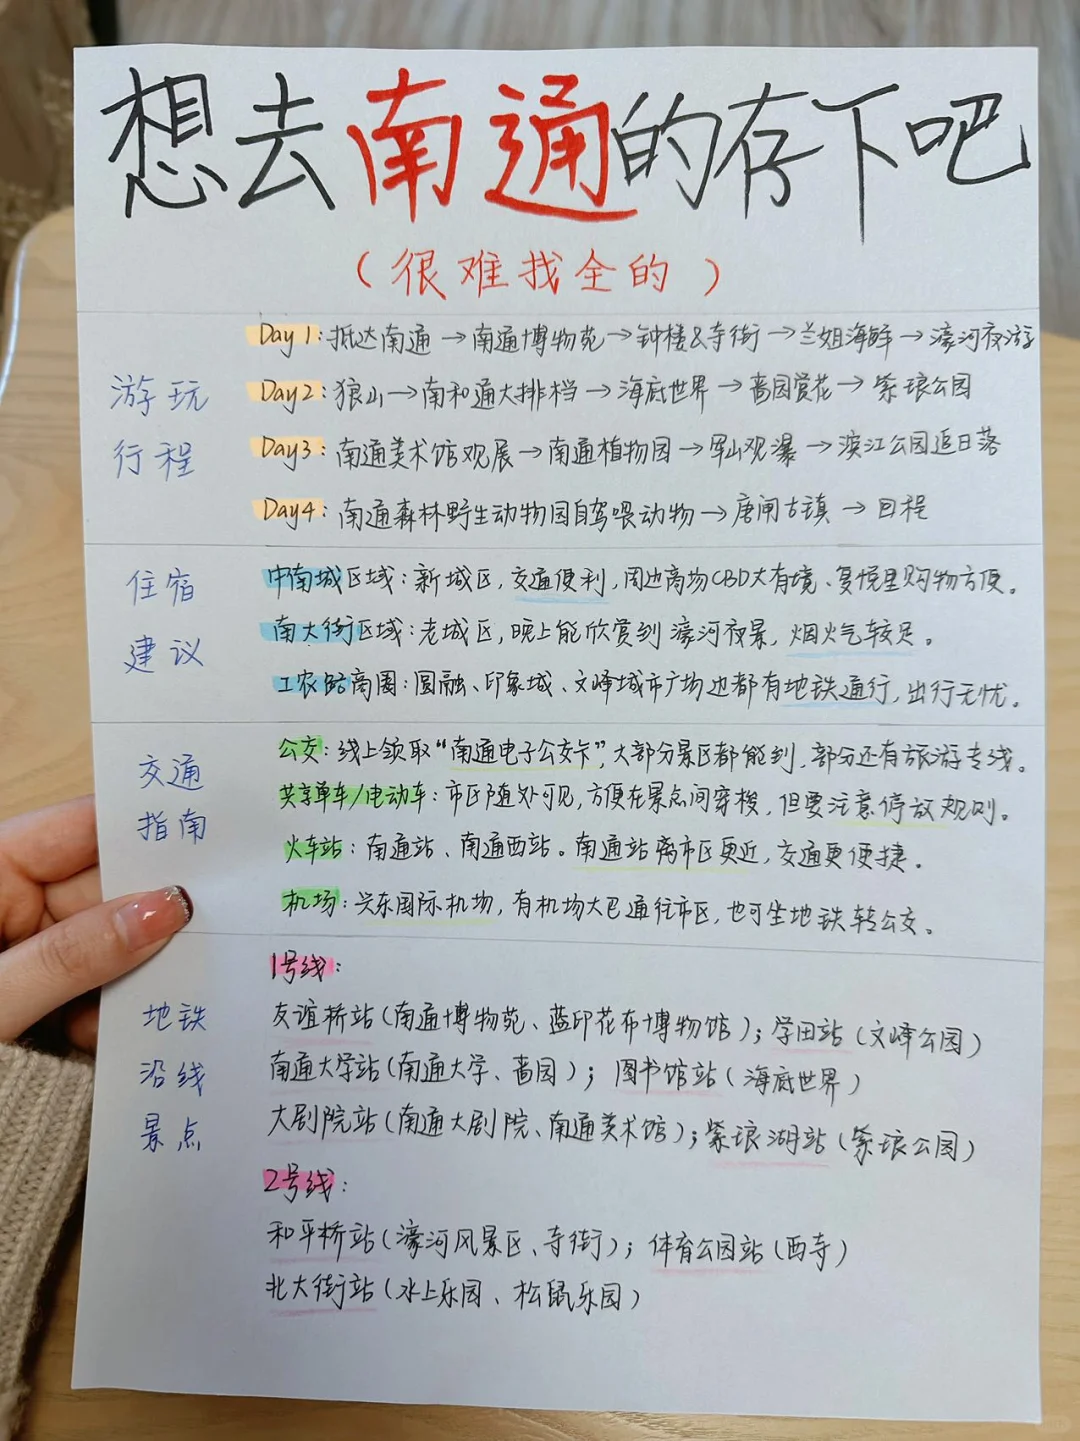 想去南通的存下吧
（很难找全的）
游玩
行程
Day1：抵达南通→南通博物苑→钟楼&寺街→兰姐海鲜→濠河夜游
Day2：狼山→南和通大排档→海底世界→啬园赏花→紫琅公园
Day3：南通美术馆观展→南通植物园→军山观瀑→滨江公园追日落
Day4：南通森林野生动物园自驾喂动物→唐闸古镇→回程
住宿
建议
中南城区域：新城区，交通便利，周边商场CBD大有境、复悦里购物方便。
南大街区域：老城区，晚上能欣赏到濠河夜景，烟火气较足。
工农路商圈：圆融、印象城、文峰城市广场边都有地铁通行，出行无忧。
交通
指南
公交：线上领取“南通电子公交卡”，大部分景区都能到，部分还有旅游专线。
共享单车/电动车：市区随处可见，方便在景点间穿梭，但要注意停放规则。
火车站：南通站、南通西站。南通站离市区更近，交通更便捷。
机场：兴东国际机场，有机场大巴通往市区，也可坐地铁转公交。
地铁
沿线
景点
1号线：
友谊桥站（南通博物苑、蓝印花布博物馆）；学田站（文峰公园）
南通大学站（南通大学、啬园）；图书馆站（海底世界）
大剧院站（南通大剧院、南通美术馆）；紫琅湖站（紫琅公园）
2号线：
和平桥站（濠河风景区、寺街）；体育公园站（西寺）
北大街站（水上乐园、松鼠乐园）